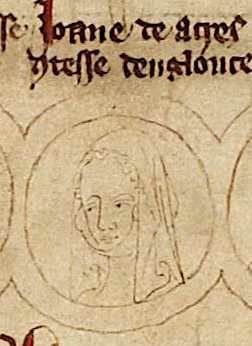 se Joane de acres
ntesse deuglouce